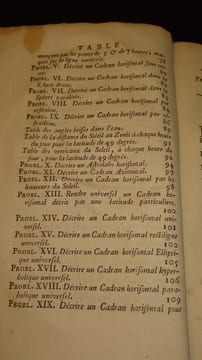 TABLE
marquez par les points de 5 & de 7 heures, mar-
quez sur la ligne verticale. 78
PROBL. V. Décrire un Cadran horisontal sous
PROBL. VI. Décrire un Cadran horisontal dans la
Sphere droite.
PROBL. VII. Décrire un Cadran horisontal dans la
Sphere parallele.
PROBL. VIII. Décrire un Cadran horisontal par
réfléxion.
PROBL. IX. Décrire un Cadran horisontal par re-
fraction.
Table des angles brisez dans l'eau.
Table de la distance du Soleil au Zenit à chaque heure
du jour pour la latitude de 49 degrez. 91
Table des verticaux du Soleil, à chaque heure du
jour, pour la latitude de 49 degrez. 92
PROBL. X. Décrire un Astrolabe horisontal. 94
PROBL. XI. Décrire un Cadran Azimutal. 96
PROBL. XII. Décrire un Cadran horisontal par les
hauteurs du Soleil. 98
PROBL. XIII. Rendre universel un Cadran ho-
risontal décrit par une latitude particuliere.
100
PROBL. XIV. Décrire un Cadran horisontal uni-
versel. 101
PROBL. XV. Décrire un Cadran horisontal rectiligne
universel. 102
PROBL. XVI. Décrire un Cadran horisontal Ellipti-
que universel. 105
PROBL. XVII. Décrire un Cadran horisontal hyper-
bolique universel. 106
PROBL. XVIII. Décrire un Cadran horisontal para-
bolique universel. 109
PROBL. XIX. Décrire un Cadran horisontal pour